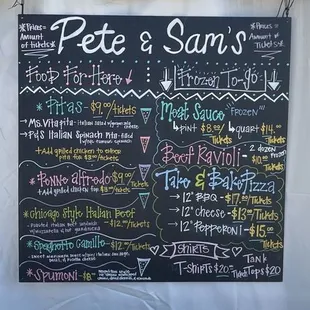 *Prices=
Amount
of tickets*
Pete & Sam's
*Prices=
Amount
of Tickets*
Food For Here
Frozen To-go
*Pitas- $9.00/Tickets
→Ms. Vita pita - Italian
→Pd's Italian Spinach Pita -
+Add grilled chicken to either
pita for $3.00/tickets
*Penne alfredo $9.00/Tickets
+Add grilled chicken for $3.00/tickets
*Chicago Style Italian Beef
- $12.00/Tickets
*Spaghetti Camille - $12.00/Tickets
*Spumoni - $8.00
Meat Sauce "Frozen"
→pint $8.00/Tickets
→quart $14.00/Tickets
Beef Ravioli - 2 dozen
Frozen
$10.00/Tickets
Take & Bake Pizza
→12" BBQ → $17.00/Tickets
→12" cheese → $13.00/Tickets
→12" Pepperoni → $15.00/Tickets
Tshirts
T-shirts $20
Tickets
Tank
Tops $20